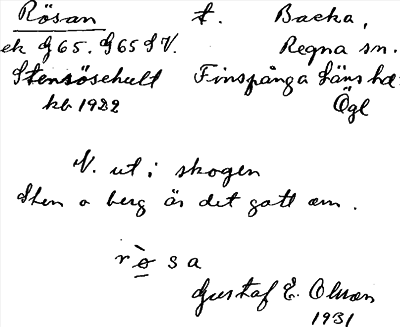 Rösan t. Backa,
ek G 65. G 65 S V. Regna sn.
Stensösehult Finspånga läns hd
kb 1922 Ögl
N. ut i skogen
Sten o berg är det gott om.
r ö s a
Gustaf E. Olsson
1931